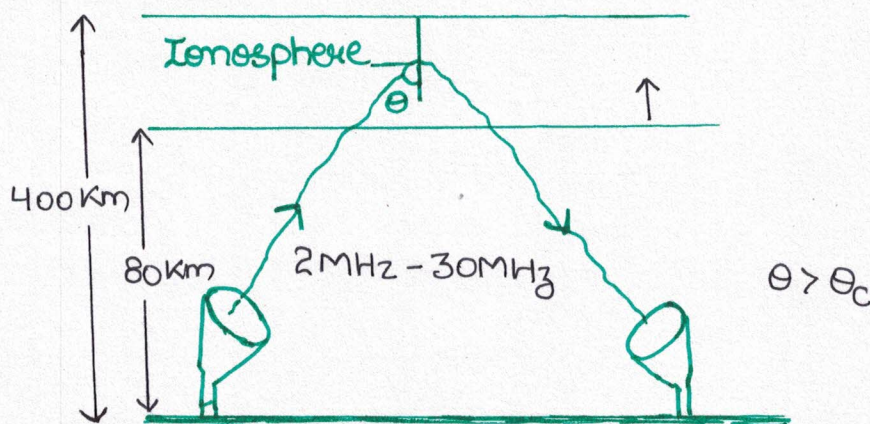 Ionosphere
θ
400Km
80Km
2MHz-30MHz
θ > θc